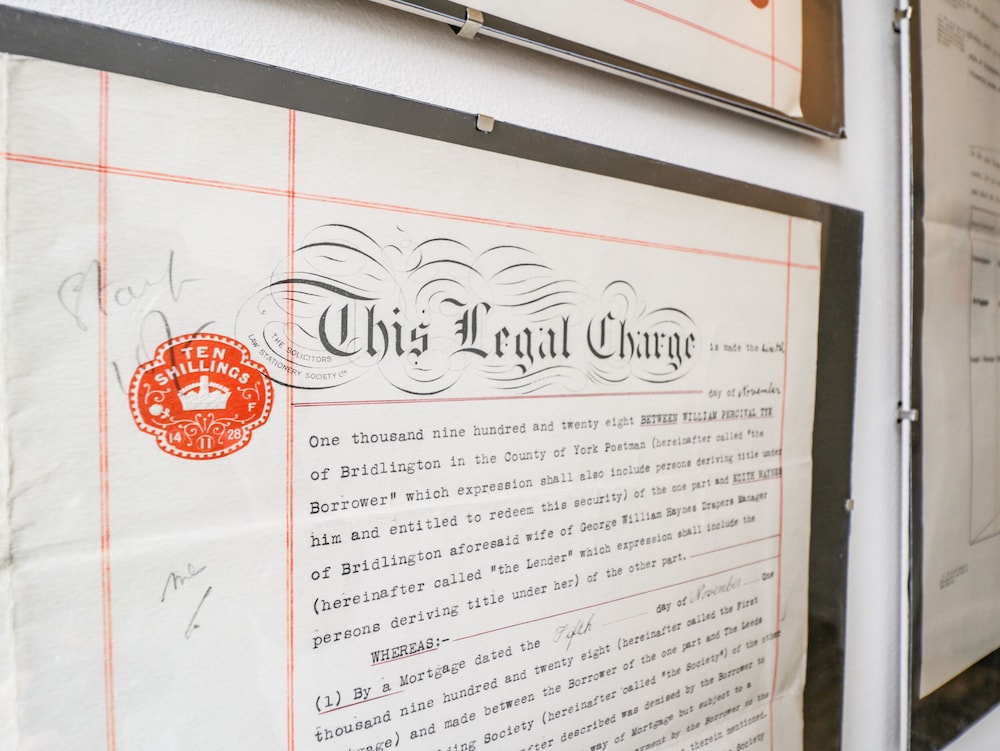 Start
TEN
SHILLINGS
F
14 11 28
THE SOLICITORS
LAW STATIONERY SOCIETY LTD
This Legal Charge is made the
day of November
One thousand nine hundred and twenty eight BETWEEN WILLIAM PERCIVAL TYN
of Bridlington in the County of York Postman (hereinafter called "the
Borrower" which expression shall also include persons deriving title under
him and entitled to redeem this security) of the one part and EDITH HAYNES
of Bridlington aforesaid wife of George William Haynes Drapers Manager
(hereinafter called "the Lender" which expression shall include the
persons deriving title under her) of the other part.
WHEREAS:-
(1) By a Mortgage dated the Fifth day of November One
thousand nine hundred and twenty eight (hereinafter called the First
Mortgage) and made between the Borrower of the one part and The Leeds
Building Society (hereinafter called "the Society") of the other
after described was demised by the Borrower to
way of Mortgage but subject to a
payment by the Borrower to the
therein mentioned.
Society